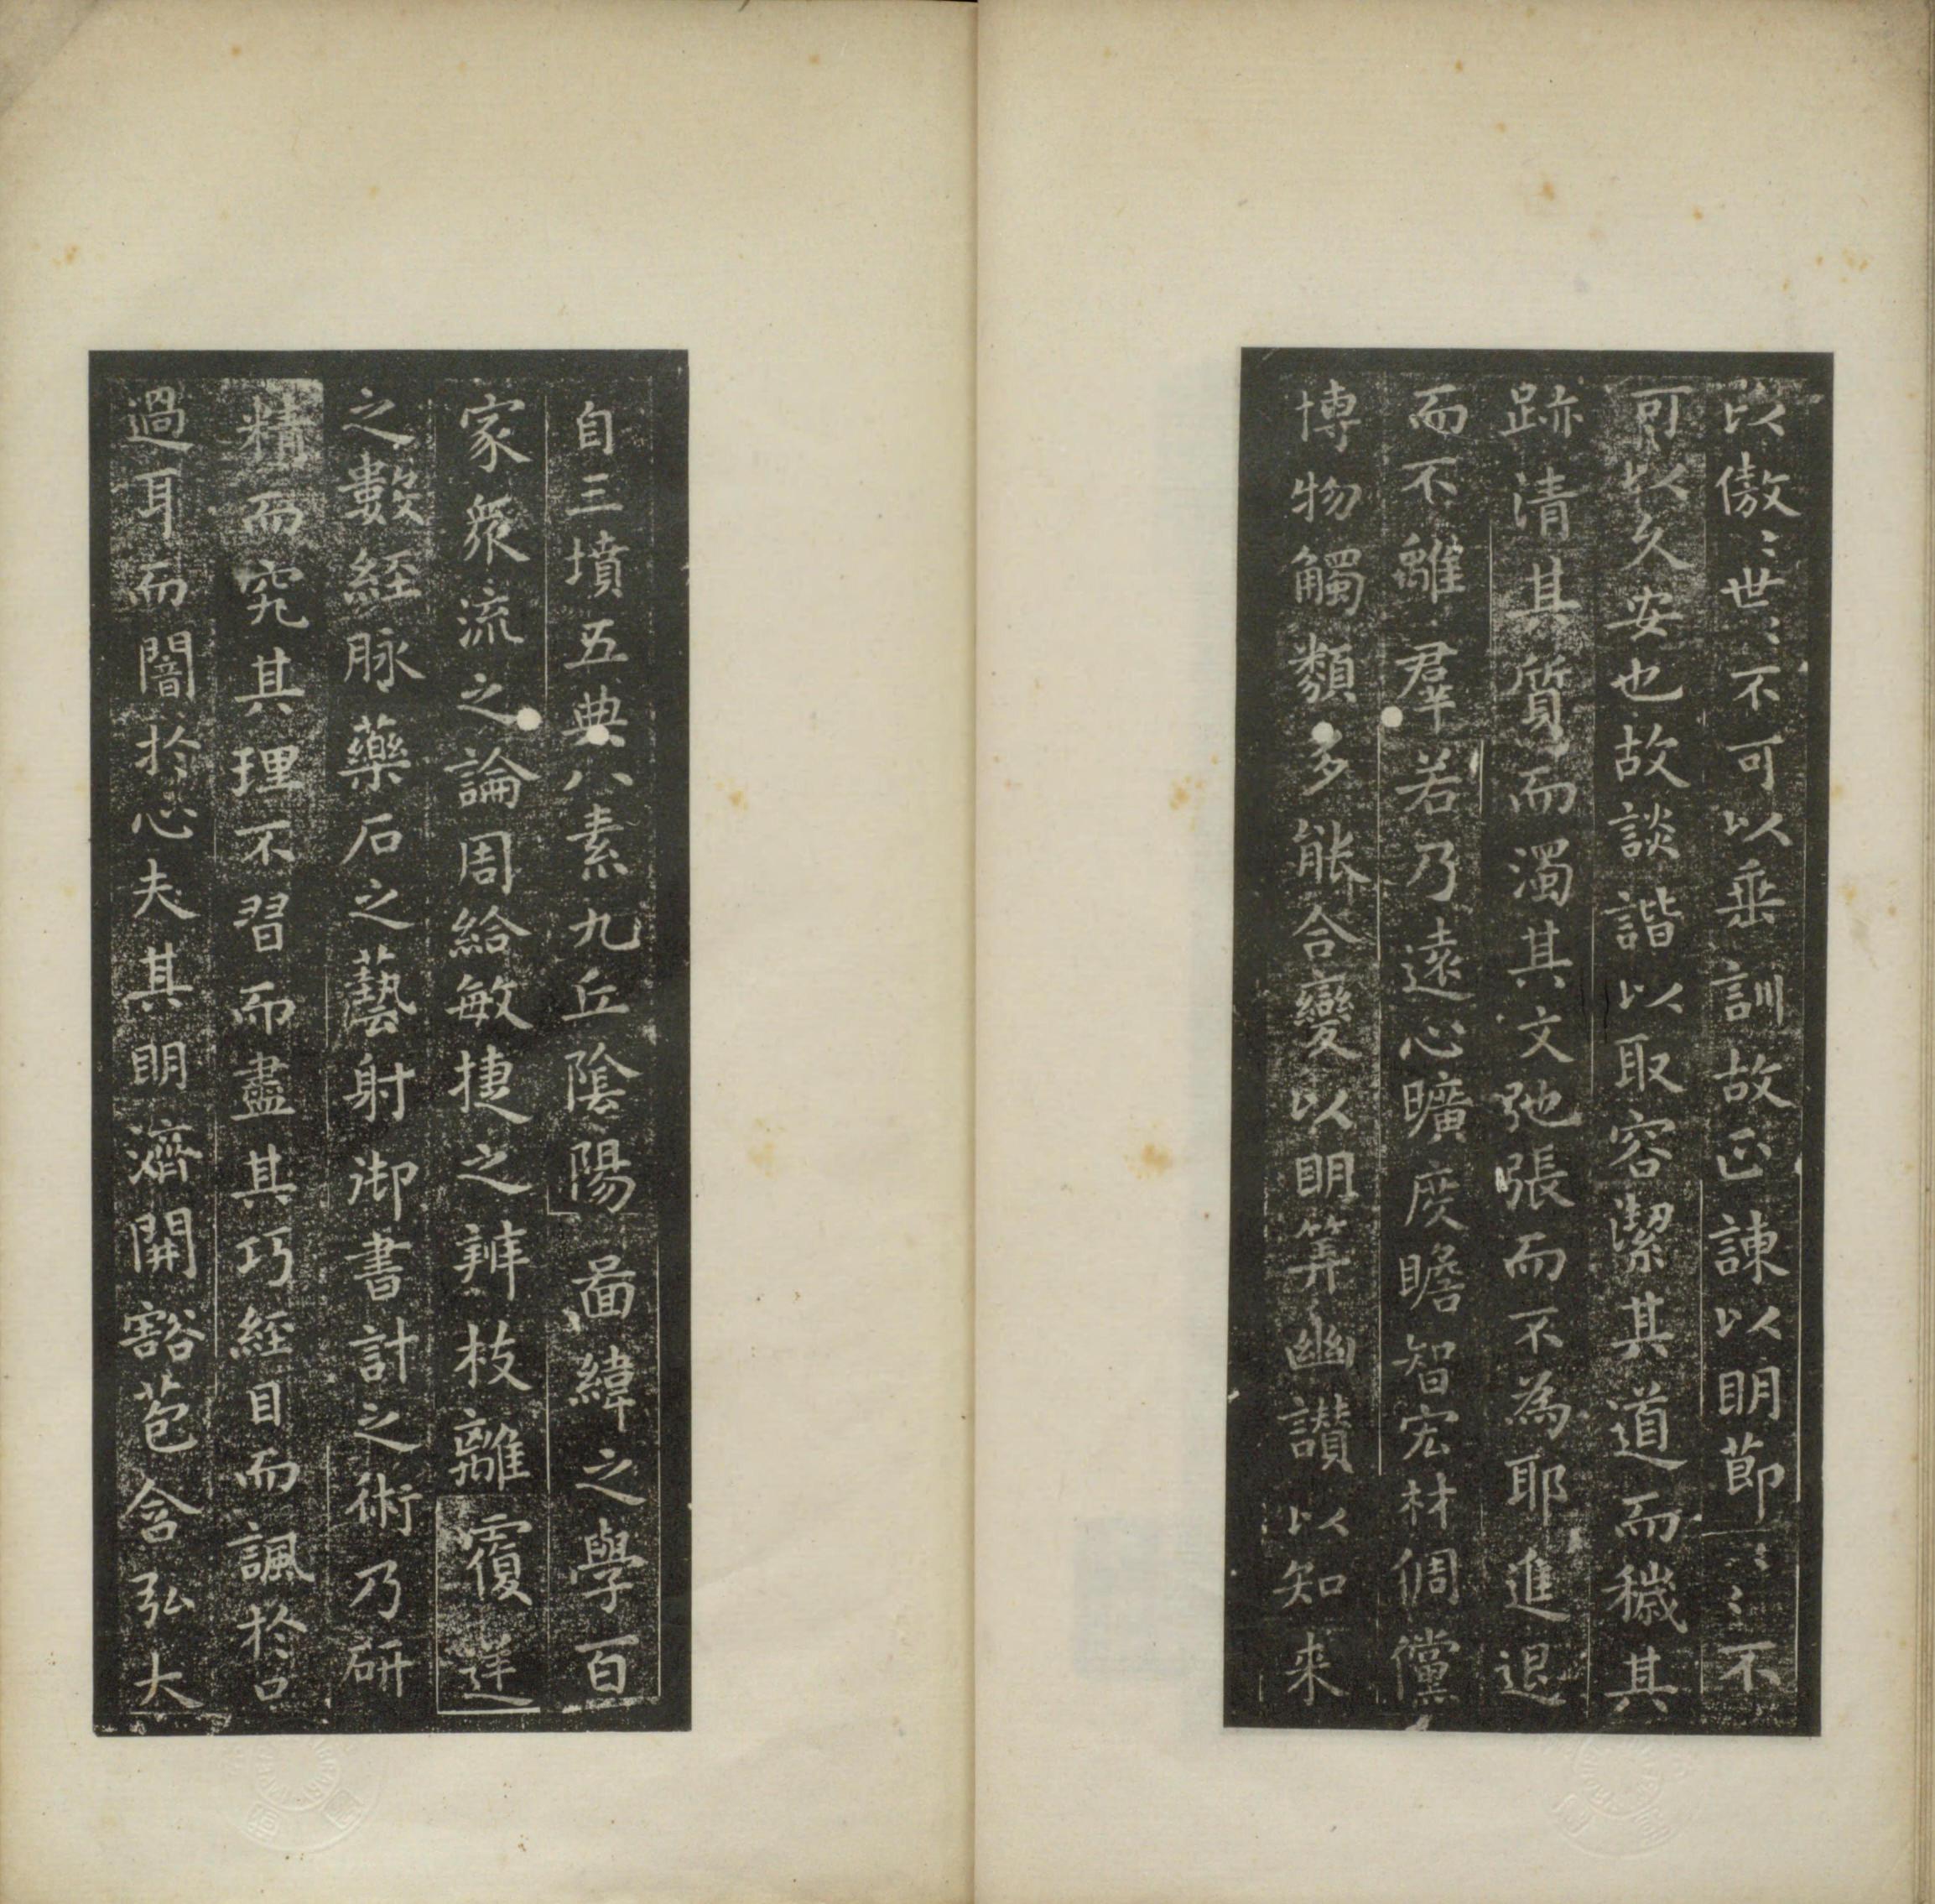 以傲〻世〻不可以垂訓故正諫以明節〻〻不
可以久安也故談諧以取容潔其道而穢其
跡清其質而濁其文弛張而不為耶進退
而不離羣若乃遠心曠度瞻智宏材倜儻
博物觸類多能合變以明筭幽讚以知来
自三墳五典八素九丘陰陽圖緯之學百
家衆流之論周給敏捷之辨枝離覆逆
之數經脉藥石之藝射御書計之術乃研
精而究其理不習而盡其巧經目而諷於口
過耳而闇於心夫其明濟開豁苞含弘大